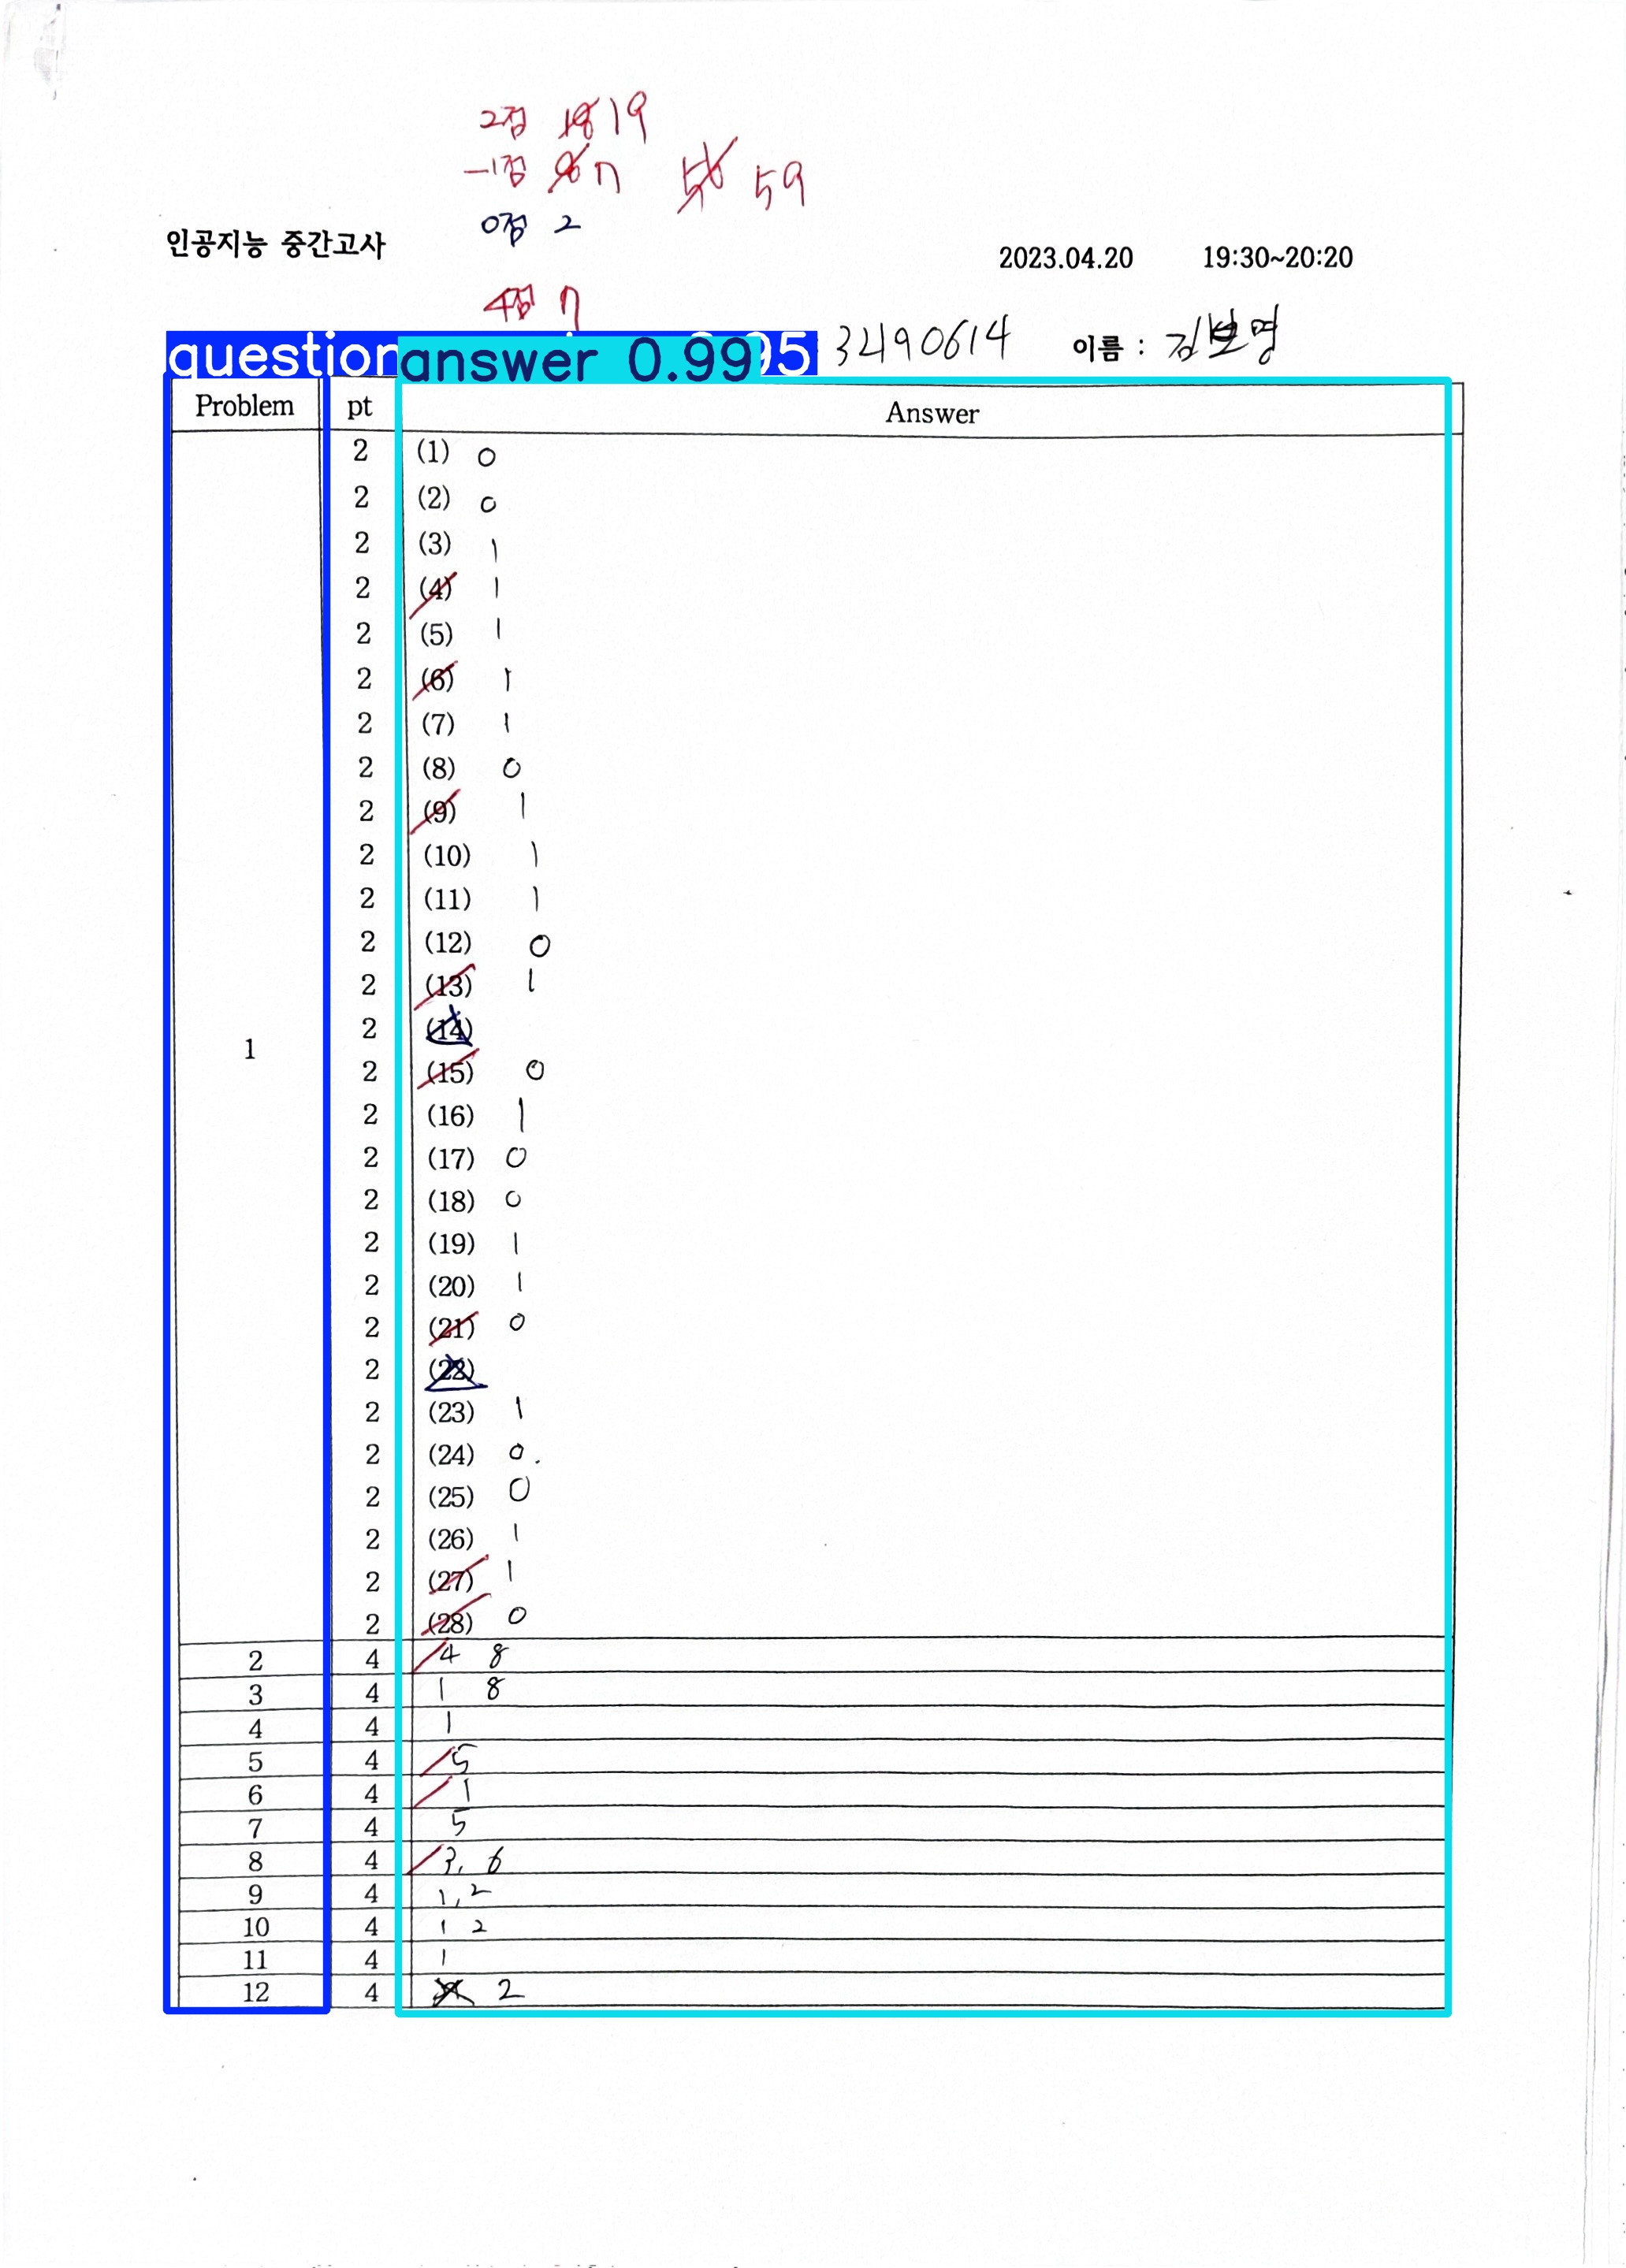 2점 18 19
-1점 8 7 56 59
0점 2
인공지능 중간고사
2023.04.20 19:30~20:20
4점 7
question answer 0.99 95 32190614 이름 : 김보영
Problem pt Answer
2 (1) 0
2 (2) 0
2 (3) 1
2 (4) 1
2 (5) 1
2 (6) 1
2 (7) 1
2 (8) 0
2 (9) 1
2 (10) 1
2 (11) 1
2 (12) 0
2 (13) 1
2 (14)
1
2 (15) 0
2 (16) 1
2 (17) 0
2 (18) 0
2 (19) 1
2 (20) 1
2 (21) 0
2 (22)
2 (23) 1
2 (24) 0.
2 (25) 0
2 (26) 1
2 (27) 1
2 (28) 0
2 4 4 8
3 4 1 8
4 4 1
5 4 5
6 4 1
7 4 5
8 4 3, 6
9 4 1, 2
10 4 1 2
11 4 1
12 4 2